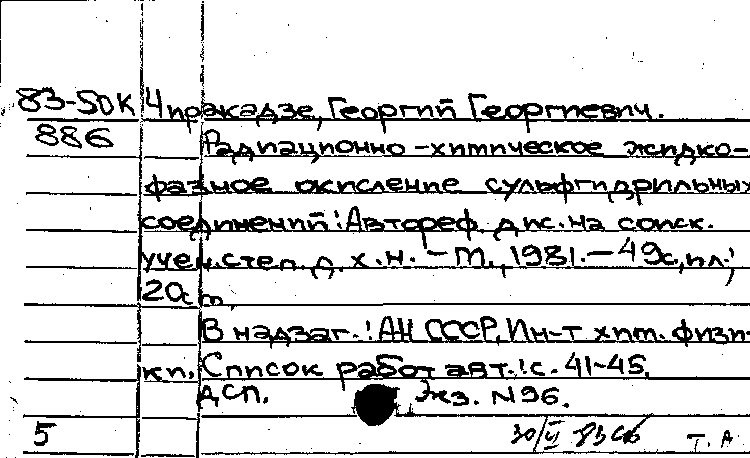 83-50К Чиракадзе, Георгий Георгиевич.
886 Радиационно-химическое жидко-
фазное окисление сульфгидрильных
соединений: Автореф. дис. на соиск.
учен. степ. д. х. н. - М., 1981. - 49с, ил.;
20см.
В надзаг.: АН СССР, Ин-т хим. физи-
ки. Список работ авт.: с. 41-45.
ДСП. Экз. N96.
5 30/VI 83 Т. А